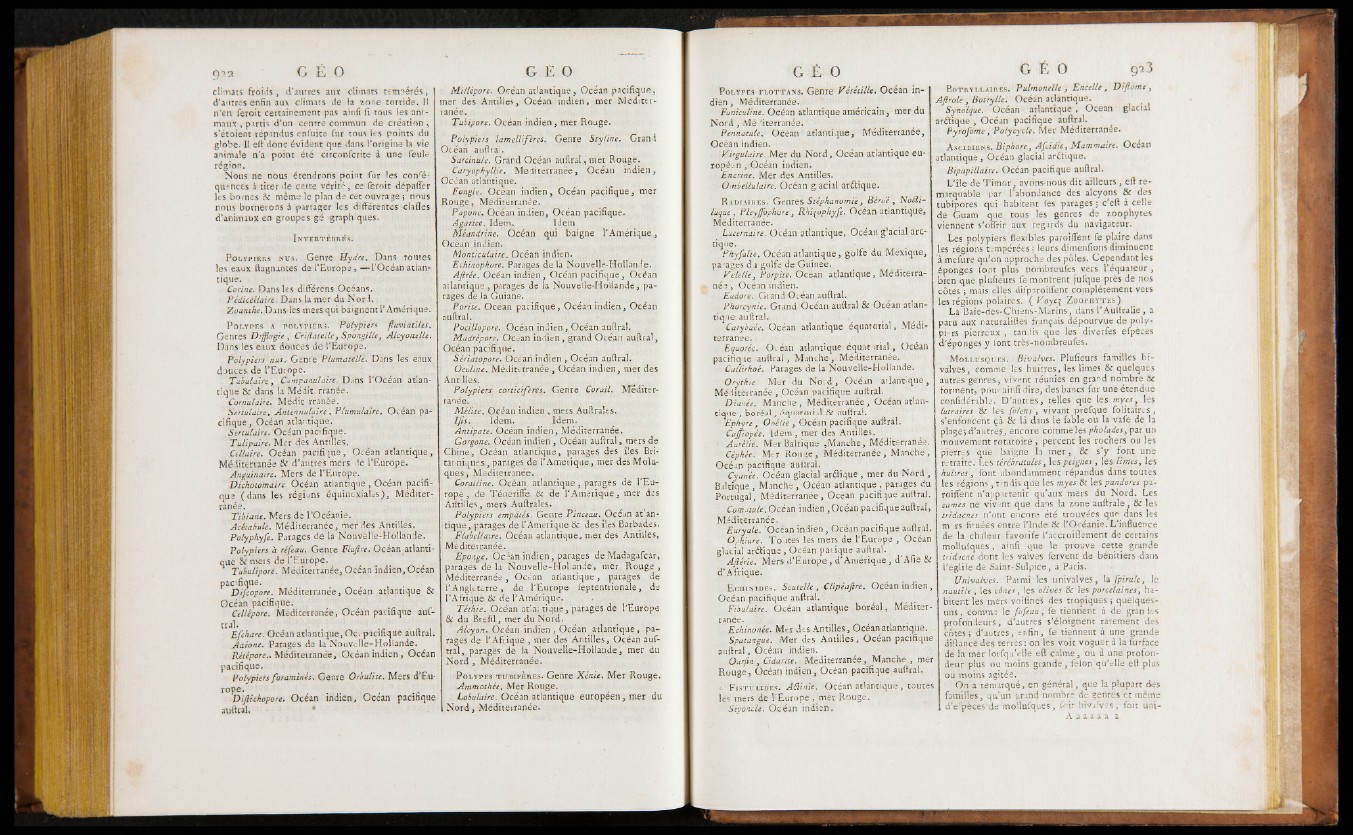 922 GÉO
climats froids, d'autres aux climats tempérés,
d'autres enfin aux climats de la zone torride. Il
n'en seroit certainement pas ainsi si tous les ani-
maux, partis d'un centre commun de création,
s'étoient répandus ensuite sur tous les points du
globe. Il est donc évident que dans l'origine la vie
animale n'a point été circonscrite à une seule
région.
Nous ne nous étendrons point sur les consé-
quences à tirer de cette vérité, ce seroit dépasser
les bornes & même le plan de cet ouvrage; nous
nous bornerons à partager les différentes classes
d'animaux en groupes géographiques.
INVERTÉBRÉS.
POLYPIERS NUS. Genre Hydre. Dans toutes
les eaux stagnantes de l'Europe, — l'Océan atlan-
tique.
Corine. Dans les différens Océans.
Pédicellaire. Dans la mer du Nord.
Zoanthe. Dans les mers qui baignent l'Amérique.
POLYPES A POLYPIERS. Polypiers fluviatiles.
Genres Difflugie, Cristatelle, Spongille, Alcyonelle.
Dans les eaux douces de l'Europe.
Polypiers nus. Genre Plumatelle. Dans les eaux
douces de l'Europe.
Tubulaire, Campanulaire. Dans l'Océan atlan-
tique & dans la Méditerranée.
Cornulaire. Méditerranée.
Sertulaire, Antennulaire, Plumulaire. Océan pa-
cifique, Océan atlantique.
Sertulaire. Océan pacifique.
Tulipaire. Mer des Antilles.
Cellaire. Océan pacifique, Océan atlantique,
Méditerranée & d'autres mers de l'Europe.
Anguinaire. Mers de l'Europe.
Dichotomaire Océan atlantique, Océan pacifi-
que (dans les régions équinoxiales), Méditer-
ranée.
Tibiane. Mers de l'Océanie.
Acétabule. Méditerranée, mer des Antilles.
Polyphyse. Parages de la Nouvelle-Hollande.
Polypiers à réseau. Genre Flustre. Océan atlanti-
que & mers de l'Europe.
Tubulipore. Méditerranée, Océan indien, Océan
pacifique.
Discopore. Méditerranée, Océan atlantique &
Océan pacifique.
Cellépore. Méditerranée, Océan pacifique aus-
tral.
Eschare. Océan atlantique, Oc. pacifique austral.
Adéone. Parages de la Nouvelle-Hollande.
Rétépore. Méditerranée, Océan indien, Océan
pacifique.
Polypiers foraminés. Genre Orbulite. Mers d'Eu-
rope.
Distichopore. Océan indien, Océan pacifique
austral.
GÉO
Millépore. Océan atlantique, Océan pacifique,
mer des Antilles, Océan indien, mer Méditer-
ranée.
Tubipore. Océan indien, mer Rouge.
Polypiers lamellifères. Genre Styline. Grand
Océan austral.
Sarcinule. Grand Océan austral, mer Rouge.
Caryophyllie. Méditerranée, Océan indien,
Océan atlantique.
Fongie. Océan indien, Océan pacifique, mer
Rouge, Méditerranée.
Pavone. Océan indien, Océan pacifique.
Agarice. Idem. Idem
Méandrine. Océan qui baigne l'Amérique,
Océan indien.
Monticulaire. Océan indien.
Echinophore. Parages de la Nouvelle-Hollande.
Astrée. Océan indien, Océan pacifique, Océan
atlantique, parages de la Nouvelle-Hollande, pa-
rages de la Guiane.
Porite. Océan pacifique, Océan indien, Océan
austral.
Pocillopore. Océan indien, Océan austral.
Madrépore. Océan indien, grand Océan austral,
Océan pacifique.
Sériatopore. Océan indien, Océan austral.
Oculine. Méditerranée, Océan indien, mer des
Antilles.
Polypiers corticifères. Genre Corail. Méditer-
ranée.
Mélite. Océan indien, mers Australes.
Isis. Idem. Idem.
Antipate. Océan indien, Méditerranée.
Gorgone. Océan indien, Océan austral, mers de
Chine, Océan atlantique, parages des îles Bri-
tanniques, parages de l'Amérique, mer des Molu-
ques, Méditerranée.
Coralline. Océan atlantique, parages de l'Eu-
rope, de Ténériffe & de l'Amérique, mer des
Antilles, mers Australes.
Polypiers empâtés. Genre Pinceau. Océan atlan-
tique, parages de l'Amérique & des îles Barbades.
Flabellaire. Océan atlantique, mer des Antilles,
Méditerranée.
Eponge. Océan indien, parages de Madagascar,
parages de la Nouvelle-Hollande, mer Rouge,
Méditerranée, Océan atlantique, parages de
l'Angleterre, de l'Europe septentrionale, de
l'Afrique & de l'Amérique.
Téthie. Océan atlantique, parages de l'Europe
& du Brésil, mer du Nord.
Alcyon. Océan indien, Océan atlantique, pa-
rages de l'Afrique, mer des Antilles, Océan aus-
tral, parages de la Nouvelle-Hollande, mer du
Nord, Méditerranée.
POLYPES TUBIFÈRES. Genre Xénie. Mer Rouge.
Ammothée. Mer Rouge.
Lobulaire. Océan atlantique européen, mer du
Nord, Méditerranée.
GÉO
POLYPES FLOTTANS. Genre Vérétille. Océan in-
dien, Méditerranée.
Funiculine. Océan atlantique américain, mer du
Nord, Méditerranée.
Pennatule. Océan atlantique, Méditerranée,
Océan indien.
Virgulaire. Mer du Nord, Océan atlantique eu-
ropéen, Océan indien.
Encrine. Mer des Antilles.
Ombellulaire. Océan glacial arctique.
RADIAIRES. Genres Stéphanomie, Béroë, Nocti-
luque, Physsophore, Rhizophyse. Océan atlantique,
Méditerranée.
Lucernaire. Océan atlantique, Océan glacial arc-
tique.
Physalie. Océan atlantique, golfe du Mexique,
parages du golfe de Guinée.
Velelle, Porpite. Océan atlantique, Méditerra-
née, Océan indien.
Eudore. Grand Océan austral.
Phorcynie. Grand Océan austral & Océan atlan-
tique austral.
Carybdée. Océan atlantique équatorial, Médi-
terranée.
Equorée. Océan atlantique équatorial, Océan
pacifique austral, Manche, Méditerranée.
Callirhoé. Parages de la Nouvelle-Hollande.
Orythie Mer du Nord, Océan atlantique,
Méditerranée, Océan pacifique austral.
Dianée. Manche, Méditerranée, Océan atlan-
tique, boréal, équatorial & austral.
Ephyre, Obélie, Océan pacifique austral.
Cassiopée. Idem, mer des Antilles.
Aurélie. Mer Baltique, Manche, Méditerranée.
Céphée. Mer Rouge, Méditerranée, Manche,
Océan pacifique austral.
Cyanée. Océan glacial arctique, mer du Nord,
Baltique, Manche, Océan atlantique, parages du
Portugal, Méditerranée, Océan pacifique austral.
Comatule. Océan indien, Océan pacifique austral,
Méditerranée.
Euryale. Océan indien, Océan pacifique austral.
Ophiure. Toutes les mers de l'Europe, Océan
glacial arctique, Océan pacifique austral.
Astérie. Mers d'Europe, d'Amérique, d'Asie &
d'Afrique.
ECHINIDES. Scutelle, Clipéastre. Océan indien,
Océan pacifique austral.
Fibulaire. Océan atlantique boréal, Méditer-
ranée.
Echinonée. Mer des Antilles, Océan atlantique.
Spatangue. Mer des Antilles, Océan pacifique
austral, Océan indien.
Oursin, Cidarite. Méditerranée, Manche, mer
Rouge, Océan indien, Océan pacifique austral.
FISTULIDES. Actinie. Océan atlantique, toutes
les mers de l'Europe, mer Rouge.
Siponcle. Océan indien.
GÉO 923
BOTRYLLAIRES. Pulmonelle, Encelle, Distome,
Aplide, Botrylle. Océan atlantique.
Synoïque. Océan atlantique, Océan glacial
arctique, Océan pacifique austral.
Pyrosome, Polycycle. Mer Méditerranée.
ASCIDIENS. Biphore, Ascidie, Mammaire. Océan
atlantique, Océan glacial arctique.
Bipapillaire. Océan pacifique austral.
L'île de Timor, avons-nous dit ailleurs, est re-
marquable par l'abondance des alcyons & des
tubipores qui habitent ses parages; c'est à celle
de Guam que tous les genres de zoophytes
viennent s'offrir aux regards du navigateur.
Les polypiers flexibles paroissent se plaire dans
les régions tempérées; leurs dimensions diminuent
à mesure qu'on approche des pôles. Cependant les
éponges sont plus nombreuses vers l'équateur,
bien que plusieurs se montrent jusque près de nos
côtes; mais elles disparoissent complétement vers
les régions polaires. (Voyez ZOOPHYTES)
La Baie-des-Chiens-Marins, dans l'Australie, a
paru aux naturalistes français dépourvue de poly-
piers pierreux, tandis que les diverses espèces
d'éponges y sont très-nombreuses.
MOLLUSQUES. Bivalves. Plusieurs familles bi-
valves, comme les huîtres, les limes & quelques
autres genres, vivent réunies en grand nombre &
forment, pour ainsi dire, des bancs sur une étendue
considérable. D'autres, telles que les myes, les
lutraires & les solens, vivant presque solitaires,
s'enfoncent çà & là dans le sable ou la vase de la
plage; d'autres, encore comme les pholades, par un
mouvement rotatoire, percent les rochers ou les
pierres que baigne la mer, & s'y font une
retraite. Les térébratules, les peignes, les limes, les
huîtres, sont abondamment répandus dans toutes
les régions, tandis que les myes & les pandores pa-
roissent n'appartenir qu'aux mers du Nord. Les
cames ne vivent que dans la zone australe, & les
tridacnes n'ont encore été trouvées que dans les
mers situées entre l'Inde & l'Océanie. L'influence
de la chaleur favorise l'accroissement de certains
mollusques, ainsi que le prouve cette grande
tridacne dont les valves servent de bénitiers dans
l'église de Saint-Sulpice, à Paris.
Univalves. Parmi les univalves, la spirule, le
nautile, les cônes, les olives & les porcelaines, ha-
bitent les mers voisines des tropiques; quelques-
uns, comme le fuseau, se tiennent à de grandes
profondeurs, d'autres s'éloignent rarement des
côtes; d'autres, enfin, se tiennent à une grande
distance des terres: on les voit voguer à la surface
de la mer lorsqu'elle est calme, ou à une profon-
deur plus ou moins grande, selon qu'elle est plus
ou moins agitée.
On a remarqué, en général, que la plupart des
familles, qu'un grand nombre de genres et même
d'espèces de mollusques, soit bivalves, soit uni-
Aaaaaa 2